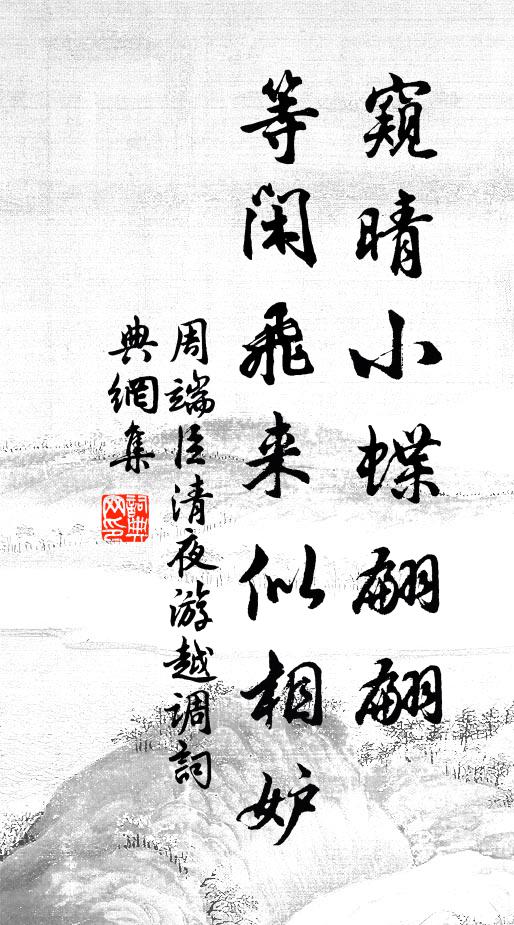 窺晴小蝶翩翩
等閑飛来似相妒
周端臣清夜游越调詞
典網集
詞典网印